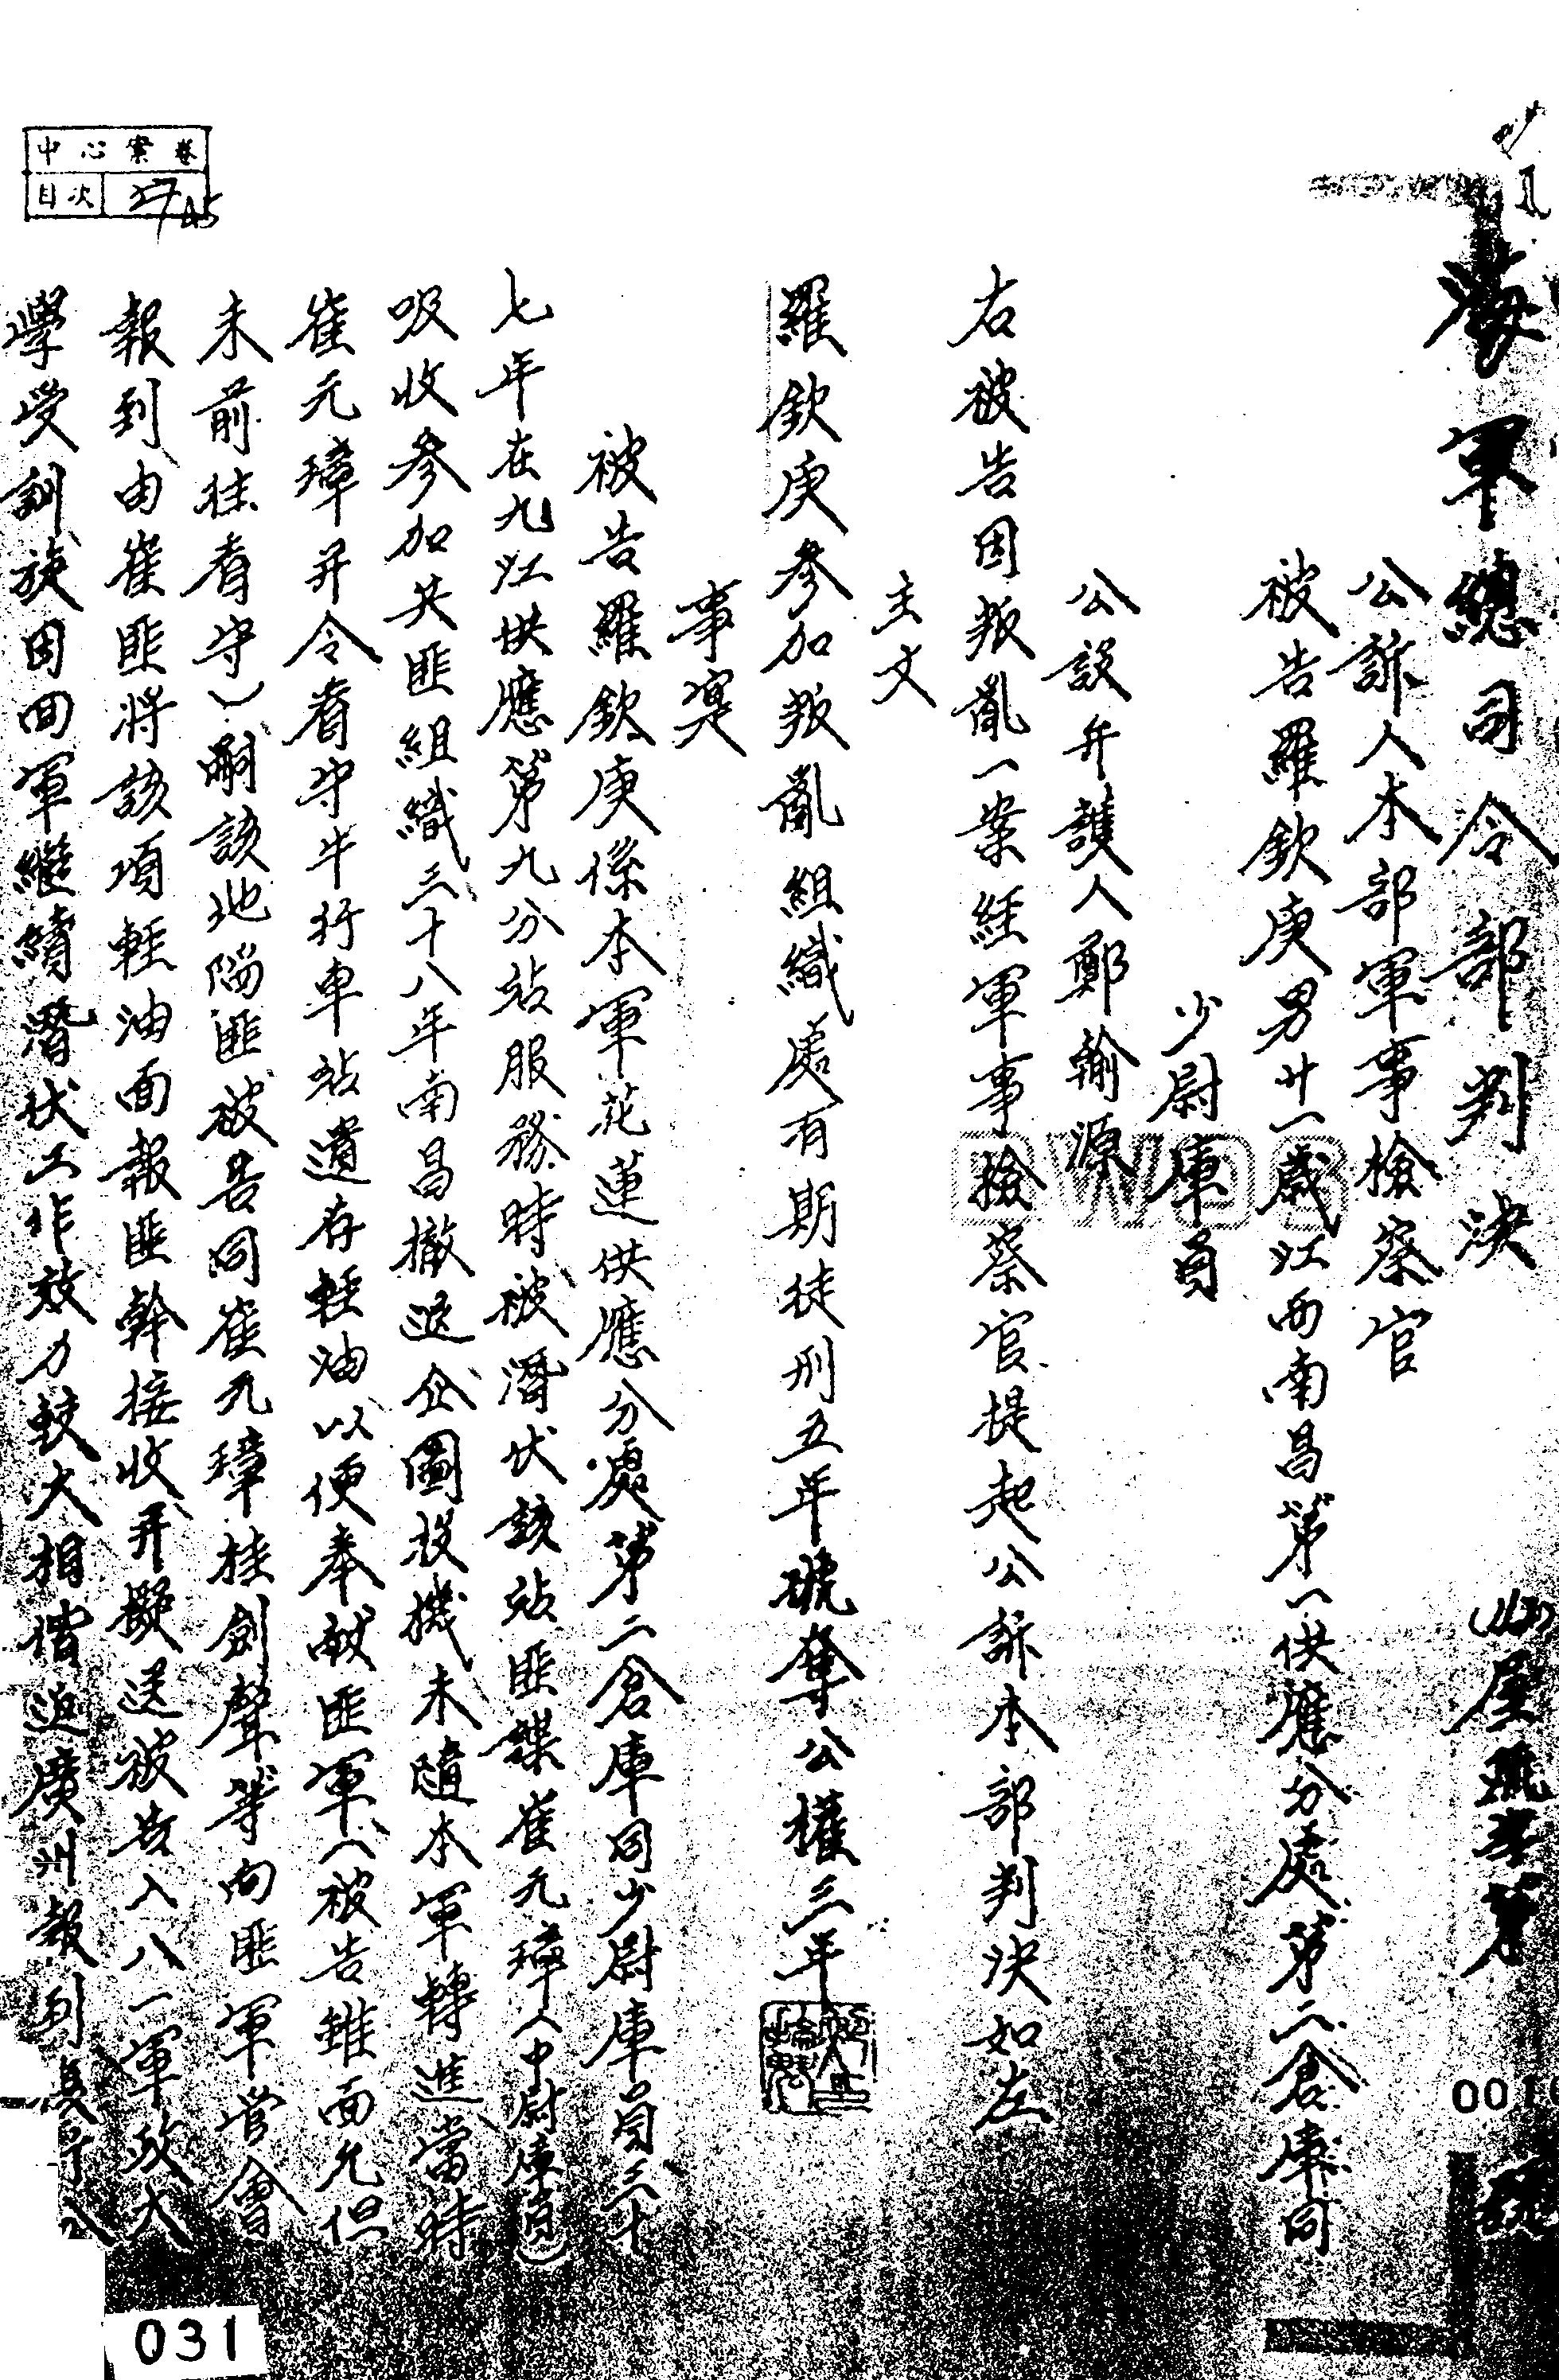 海軍總司令部判決
公訴人本部軍事檢察官
被告羅欽庚男廿一歲江西南昌第一供應分處第二倉庫同
少尉庫員
公設弁護人鄭輸源
右被告因叛亂一案經軍事檢察官提起公訴本部判決如左
主文
羅欽庚參加叛亂組織處有期徒刑五年褫奪公權三年
事實
被告羅欽庚係本軍花蓮供應分處第二倉庫同少尉庫員三十
七年在九江供應第九分站服務時被潛伏該站匪諜崔元璋(中尉庫員)
吸收參加共匪組織三十八年南昌撤退企圖投機未隨本軍轉進當時
崔元璋并令看守牛行車站遺存輕油以便奉献匪軍(被告雖面允但
未前往看守)嗣該地陷匪被告同崔元璋桂劍聲等向匪軍管會
報到由崔匪將該項輕油面報匪幹接收并擬送被告入八一軍政大
學受訓旋因回軍繼續潛伏工作效力較大相偕返廣州報到
中心案卷
目次 27
031
DWDS